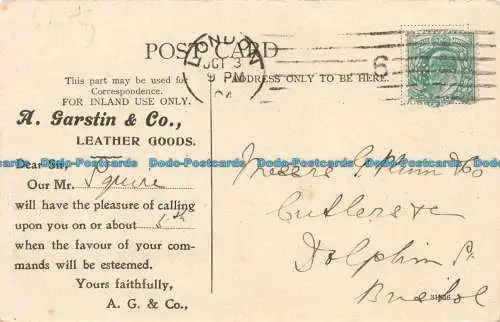 POST CARD
LONDON
OCT 3
9 PM
6
This part may be used for
Correspondence.
FOR INLAND USE ONLY.
ADDRESS ONLY TO BE HERE.
A. Garstin & Co.,
LEATHER GOODS.
Dear Sir,
Our Mr. Squire
will have the pleasure of calling
upon you on or about 5th
when the favour of your com-
mands will be esteemed.
Yours faithfully,
A. G. & Co.,
Messrs G. & Co
Cutlers &c
Dolphin St
Bristol
Dodo-Postcards Dodo-Postcards Dodo-Postcards Dodo-Postcards Dodo-Postcards